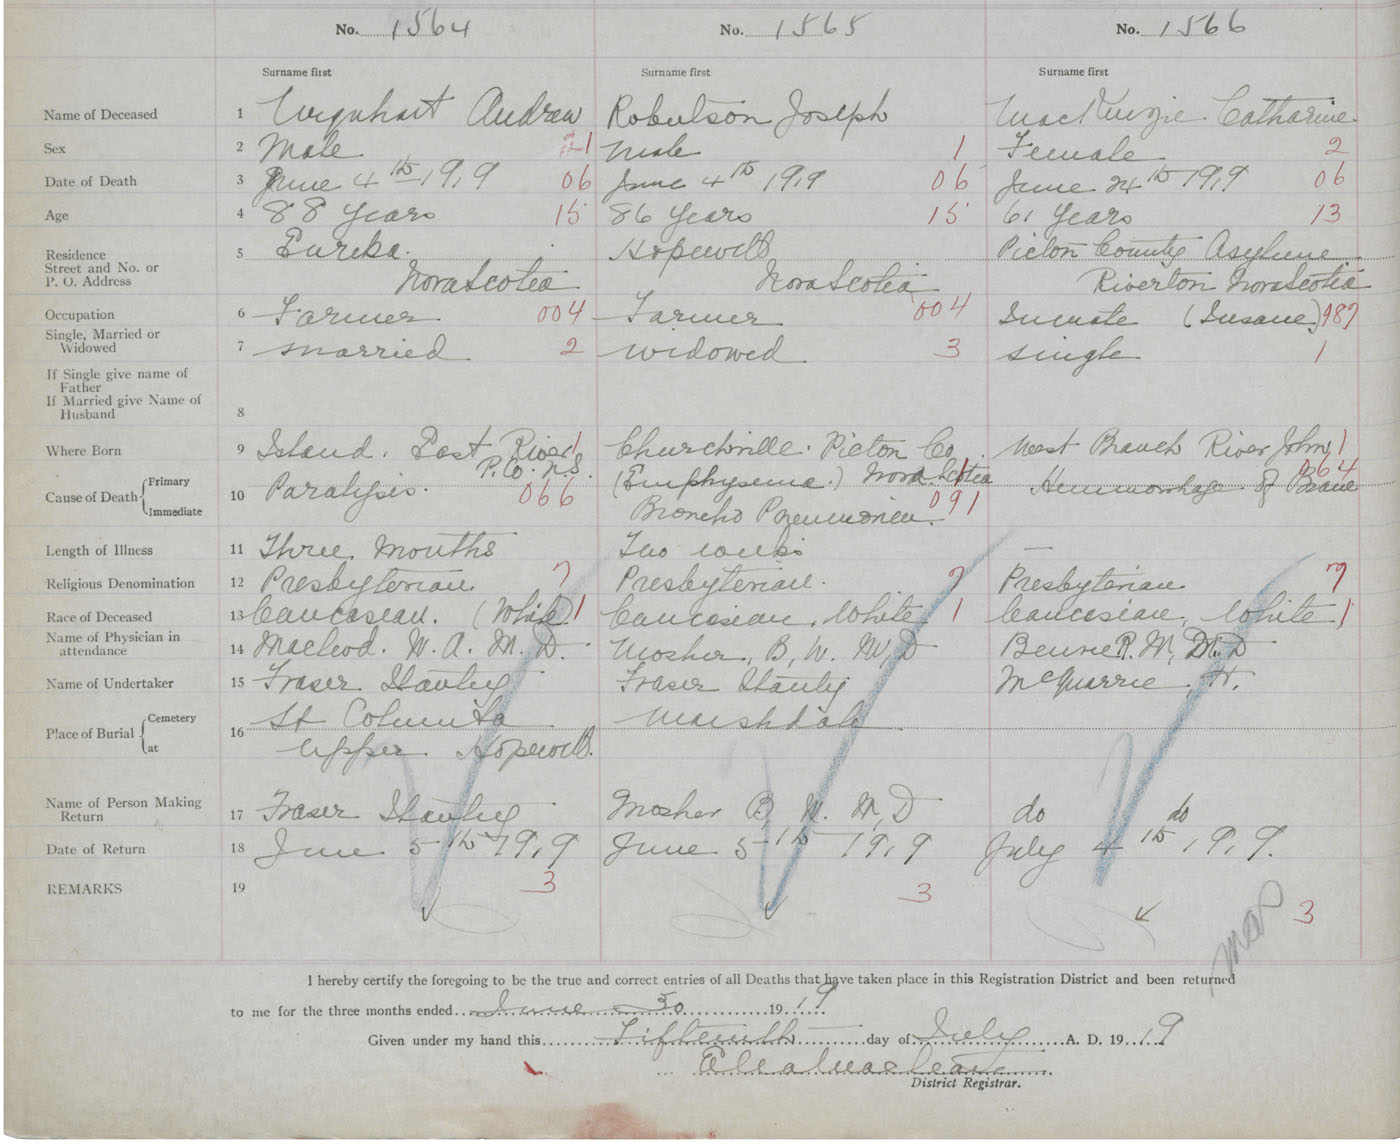 No. 1564 No. 1565 No. 1566
Surname first Surname first Surname first
Name of Deceased 1 Urquhart Andrew Robertson Joseph MacKenzie Catharine
Sex 2 Male 21 Male 1 Female 2
Date of Death 3 June 4th 1919 06 June 4th 1919 06 June 24th 1919 06
Age 4 88 Years 15 86 Years 15 61 Years 13
Residence 5 Eureka. Hopewell Pictou County Asylum
Street and No. or
P. O. Address Nova Scotia Nova Scotia Riverton Nova Scotia
Occupation 6 Farmer 004 Farmer 004 Inmate (Insane) 987
Single, Married or
Widowed 7 married 2 widowed 3 single 1
If Single give name of
Father
If Married give Name of
Husband 8
Where Born 9 Island. East River 1 Churchville. Pictou Co. West Branch River John, 1
P. Co. N.S. Nova Scotia 1 064
Cause of Death Primary 10 Paralysis. 066 (Emphysema.) Hemmorrhage of Brain
Immediate Broncho Pneumonia. 091
Length of Illness 11 Three Months Two weeks —
Religious Denomination 12 Presbyterian 7 Presbyterian. 7 Presbyterian 7
Race of Deceased 13 Caucasean. (White) 1 Caucasian, White 1 Caucasian, White 1
Name of Physician in
attendance 14 Macleod. W. A. M. D. Mosher, B, W. M, D R. M, M. D
Name of Undertaker 15 Fraser Stanley Fraser Stanley McQuarrie, H.
Place of Burial Cemetery 16 St Columba Marshdale
at Upper Hopewell.
Name of Person Making
Return 17 Fraser Stanley Mosher B W. M, D do do
Date of Return 18 June 5th 1919 June 5th 1919 July 4th 1919.
REMARKS 19 3 3 3
I hereby certify the foregoing to be the true and correct entries of all Deaths that have taken place in this Registration District and been returned
to me for the three months ended June 30 1919
Given under my hand this Fifteenth day of July A. D. 1919
District Registrar.